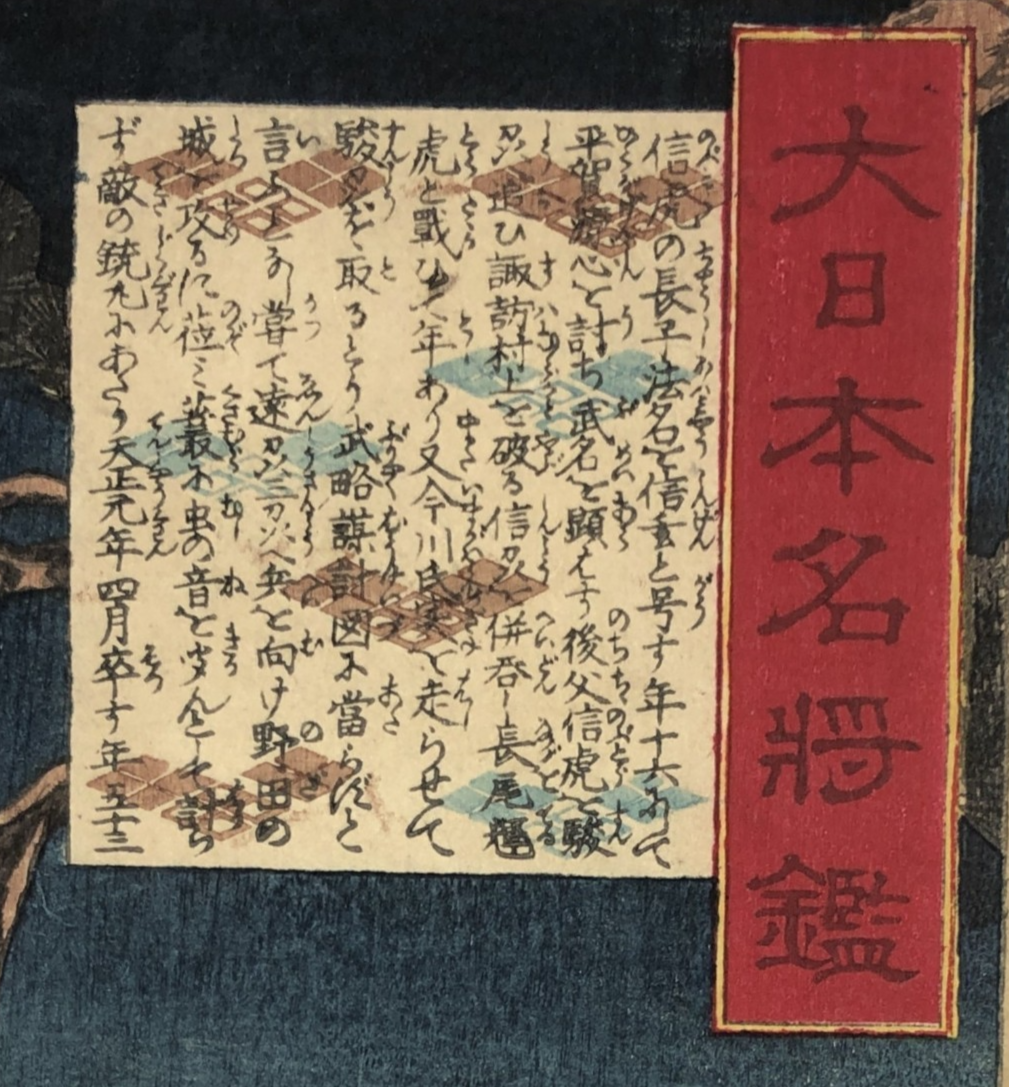 大日本名將鑑
信虎の長子法名を信玄と号す年十六にて
平賀源心を討ち武名を顕はす後父信虎を駿
刕へ追ひ諏訪村上を破る信刕を併呑し長尾輝
虎と戰ひ年あり又今川氏実を走らせて
駿刕を取るより武略謀計図に當らずと
言ふことなし嘗て遠刕三刕へ兵を向け野田の
城を攻るに莅み叢に虫の音を聞んとして計ら
ず敵の銃丸にあたり天正元年四月卒す年五十三